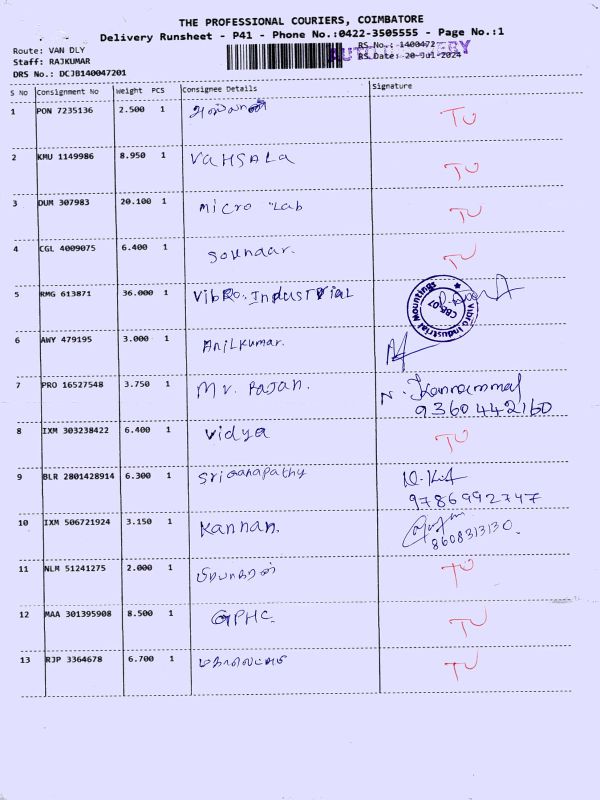 THE PROFESSIONAL COURIERS, COIMBATORE
Delivery Runsheet - P41 - Phone No.:0422-3505555 - Page No.:1
Route: VAN DLY RS No.: 1400472
Staff: RAJKUMAR RS Date: 20-Jul-2024
DRS No.: DCJB140047201
S No Consignment No Weight PCS Consignee Details Signature
1 PON 7235136 2.500 1 TU
2 KMU 1149986 8.950 1 VAHSALA TU
3 DUM 307983 20.100 1 Micro Lab TU
4 CGL 4009075 6.400 1 Soundar. TU
5 RMG 613871 36.000 1 Vibro. Industrial Vibro Industrial Mountings CBE-07
6 AWY 479195 3.000 1 Anilkumar.
7 PRO 16527548 3.750 1 Mr. Rajan. N. Kannammal
9360442160
8 IXM 303238422 6.400 1 Vidya TU
9 BLR 2801428914 6.300 1 Sriganapathy
9786992747
10 IXM 506721924 3.150 1 Kannan.
8608313130.
11 NLM 51241275 2.000 1 பிரபாகரன் TU
12 MAA 301395908 8.500 1 GPHC. TU
13 RJP 3364678 6.700 1 TU